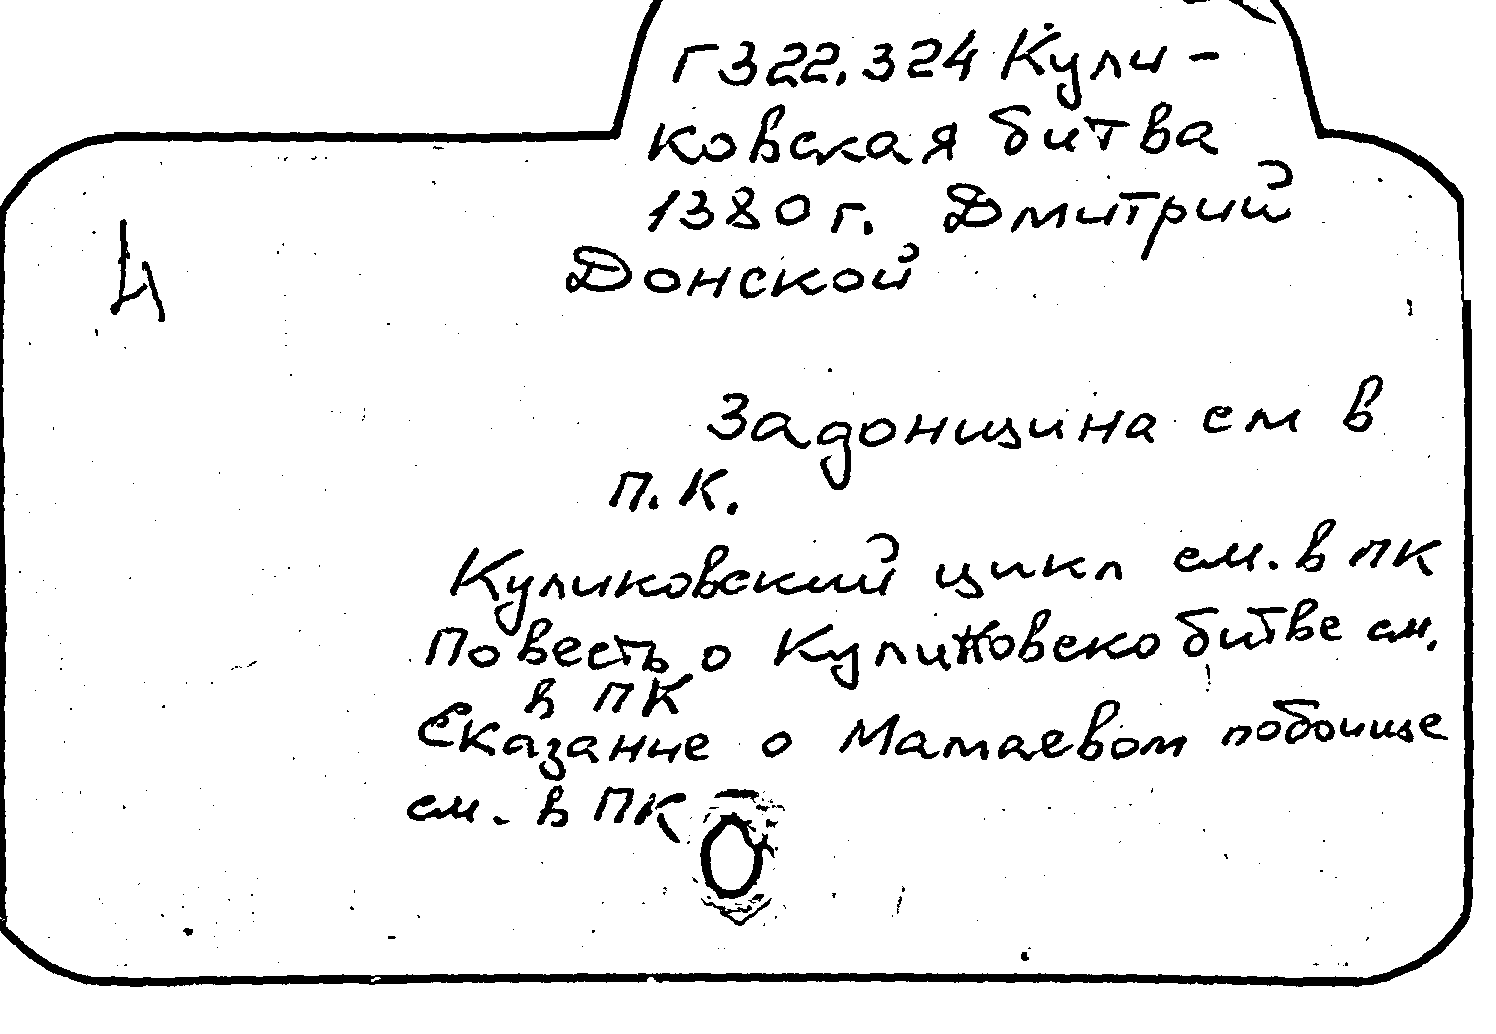 Г322.324 Кули-
ковская битва
1380 г. Дмитрий
Донской
Задонщина см в
п. к.
Куликовский цикл см. в пк
Повесть о Куликовско битве см.
в пк
Сказание о Мамаевом побоище
см. в ПК